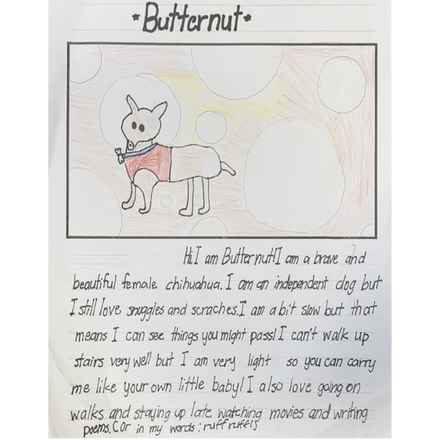 *Butternut*
Hi I am Butternut! I am a brave and
beautiful female chihuahua. I am an independent dog but
I still love snuggles and scraches. I am a bit slow but that
means I can see things you might pass! I can't walk up
stairs very well but I am very light so you can carry
me like your own little baby! I also love going on
walks and staying up late watching movies and writing
poems. Cor in my words: ruff ruffels